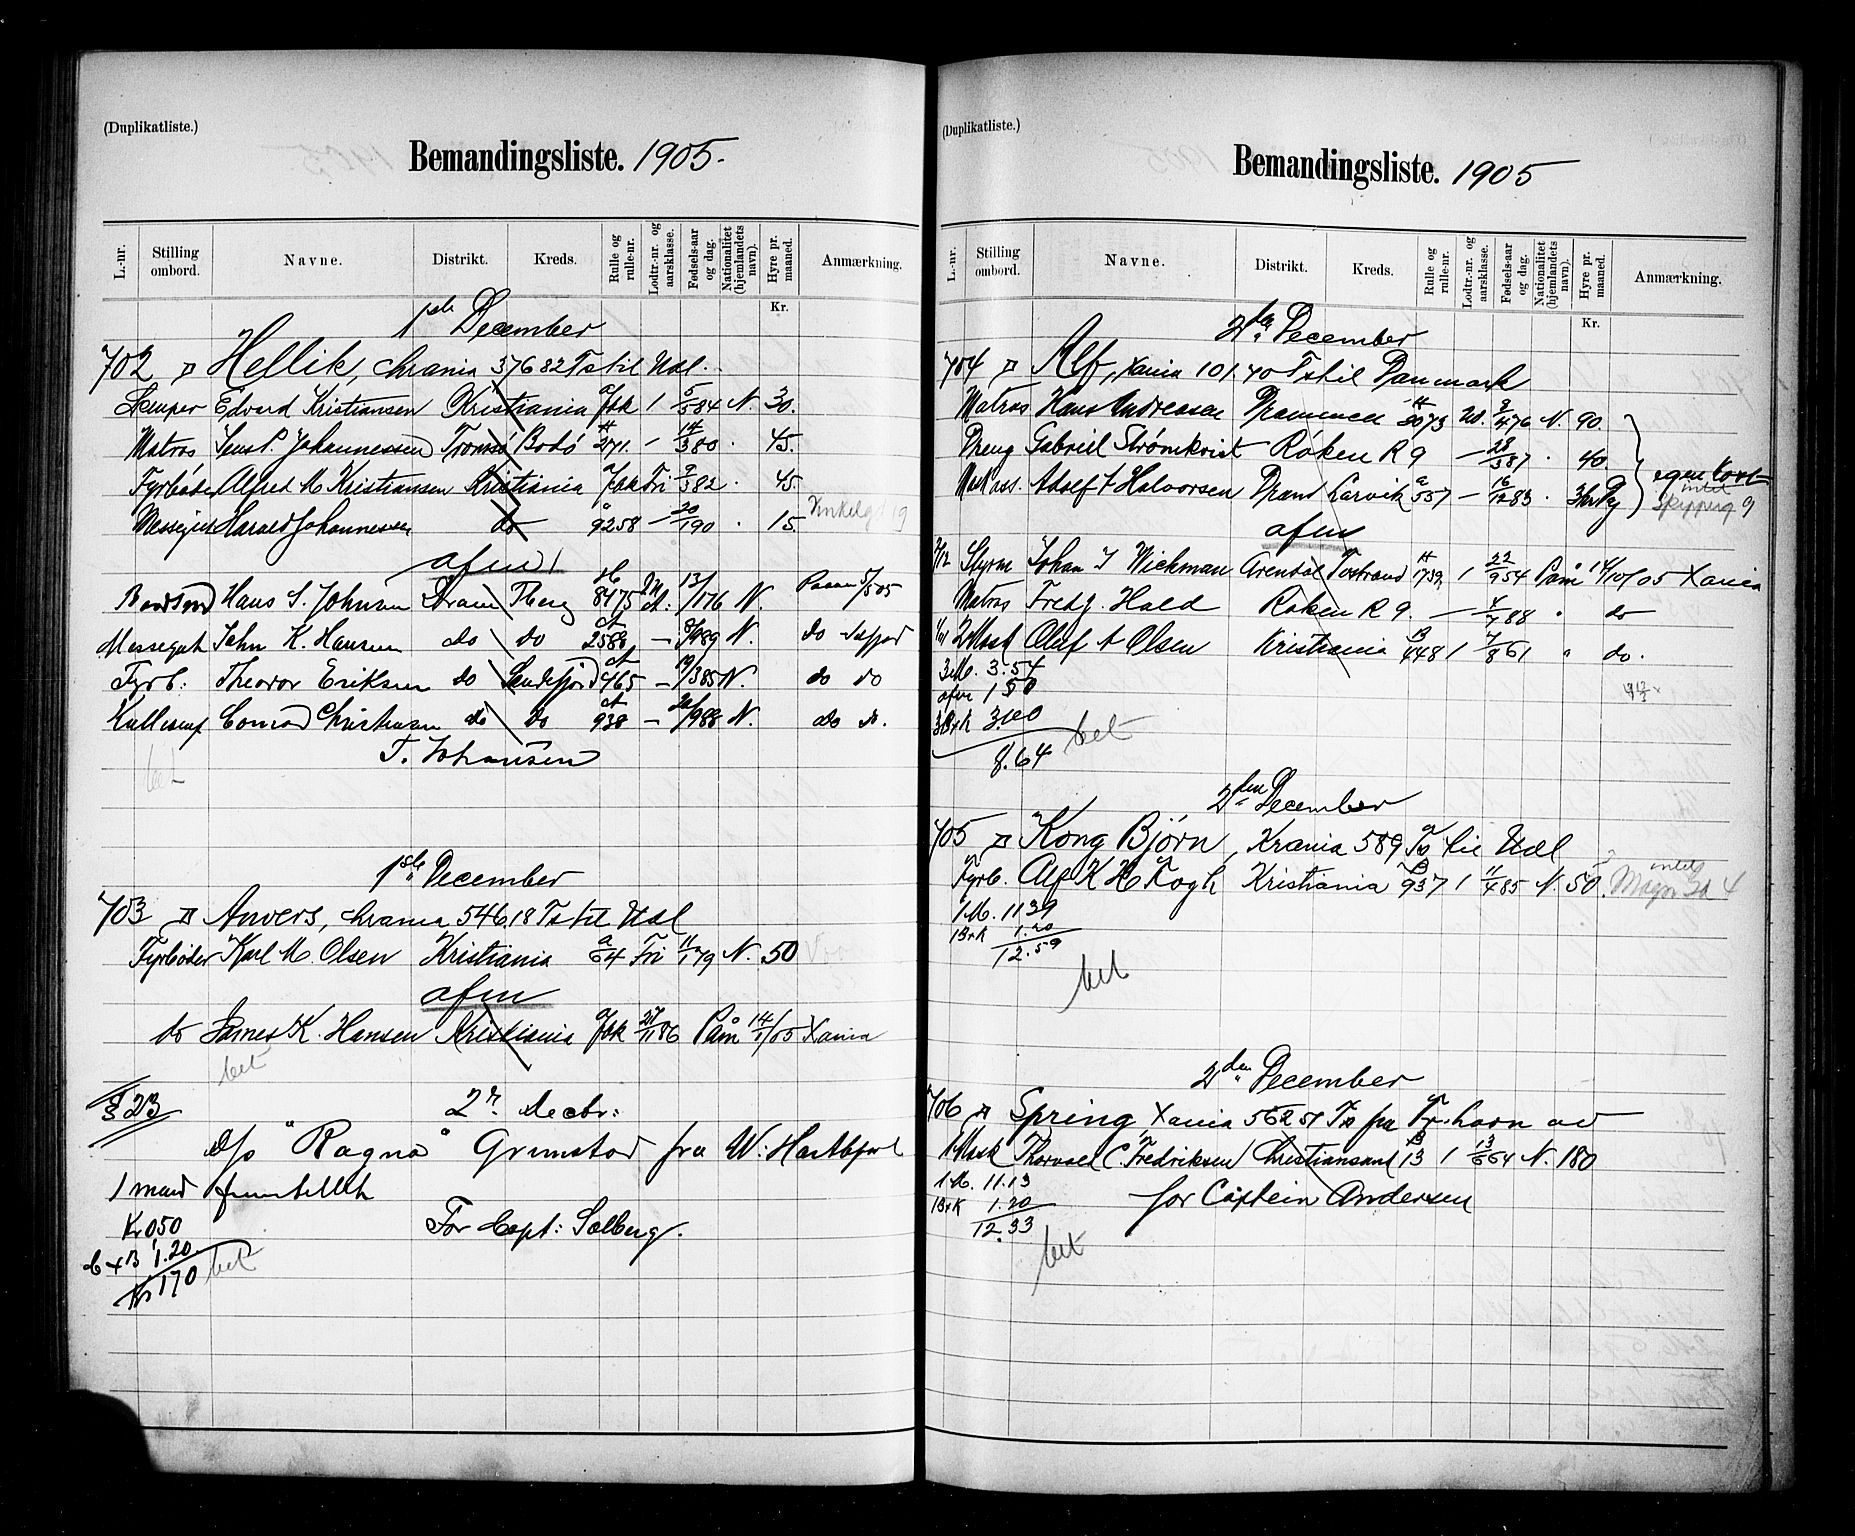 (Duplikatliste.)
Bemandingsliste. 1905.
L.-nr. Stilling ombord. Navne. Distrikt. Kreds. Rulle og rulle-nr. Lodtr.-nr. og aarsklasse. Fødsels-aar og dag. Nationalitet (hjemlandets navn). Hyre pr. maaned. Anmærkning.
Kr.
1ste December
702 Hellik, Chrania 376 82 Ts til Udl.
Edvard Kristiansen Kristiania 1 5/5 84 N. 30.
Matros Jens P. Johannessen Tromsø Bodø 271. - 14/3 80 . 45.
Fyrbøder Alfred M Kristiansen Kristiania Fri 9/3 82 . 45.
Messejut Harald Johannessen do 9258 - 20/1 90 . 15.
afm
Baadsmd Hans S. Johnsen Dram Tberg 8475 13/1 76 N.
Messegut John K. Hansen do do 2580 - 8/9 89 N. do
Fyrb: Theodor Eriksen do Sandefjord 465 - 19/3 85 N. do do
Conrad Christensen do do 938 - 26/9 88 N. do do.
T. Johansen
1ste December
703 Anvers, Chrania, 546.18 Ts til Udl
Fyrbøder Karl M. Olsen Kristiania a/64 Fri 11/1 79 N. 50
afm
do James K. Hansen Kristiania 27/11 86 Påm 14/1/05 Xania
bet
823
2n Decbr:
D/s "Ragna" Grimstad fra W. Hartlepool
1 mand
Kr 0,50
C+B 1.20
Kr 1,70 bet
For Capt: Solberg.
(Duplikatliste.)
Bemandingsliste. 1905
L.-nr. Stilling ombord. Navne. Distrikt. Kreds. Rulle og rulle-nr. Lodtr.-nr. og aarsklasse. Fødsels-aar og dag. Nationalitet (hjemlandets navn). Hyre pr. maaned. Anmærkning.
Kr.
2den December
704 Alf, Xania 101.40 Ts til Danmark
Matros Hans Andreasen Drammen 2073 4/4 76 N. 90.
Dreng Gabriel Strømkvist Røken R 9 - 28/5 87 . 40.
Adolf F Halvorsen Dram Larvik a/557 - 16/12 83 .
afm
Styrm Johan J Wickman Arendal Tostrand 1739 1 22/9 54 Påm 14/10/05 Xania
Matros Fredz. Hald Røken R 9. - 4/4 88 " do
2 Mask Oluf A Olsen Kristiania 448 1 7/8 61 " do.
3 M. 3.54
afm 1 50
3 B+K 3.60
8.64 bet
2den December
705 Kong Bjørn, Krania 589 Ts til Udl
Fyrb. Alf K H Kogh Kristiania 937 1 11/4 85 N. 50.
1 M. 11 39
1 B+K 1.20
12.59
bet
2den December
706 Spring, Xania 562 51 Ts fra Fr.havn
1 Mask Thorvald C. Fredriksen Christiansand 13 1 13/6 64 N. 180
1 M. 11.13
1 B+K 1.20
12.33
for Captein Andersen
bet